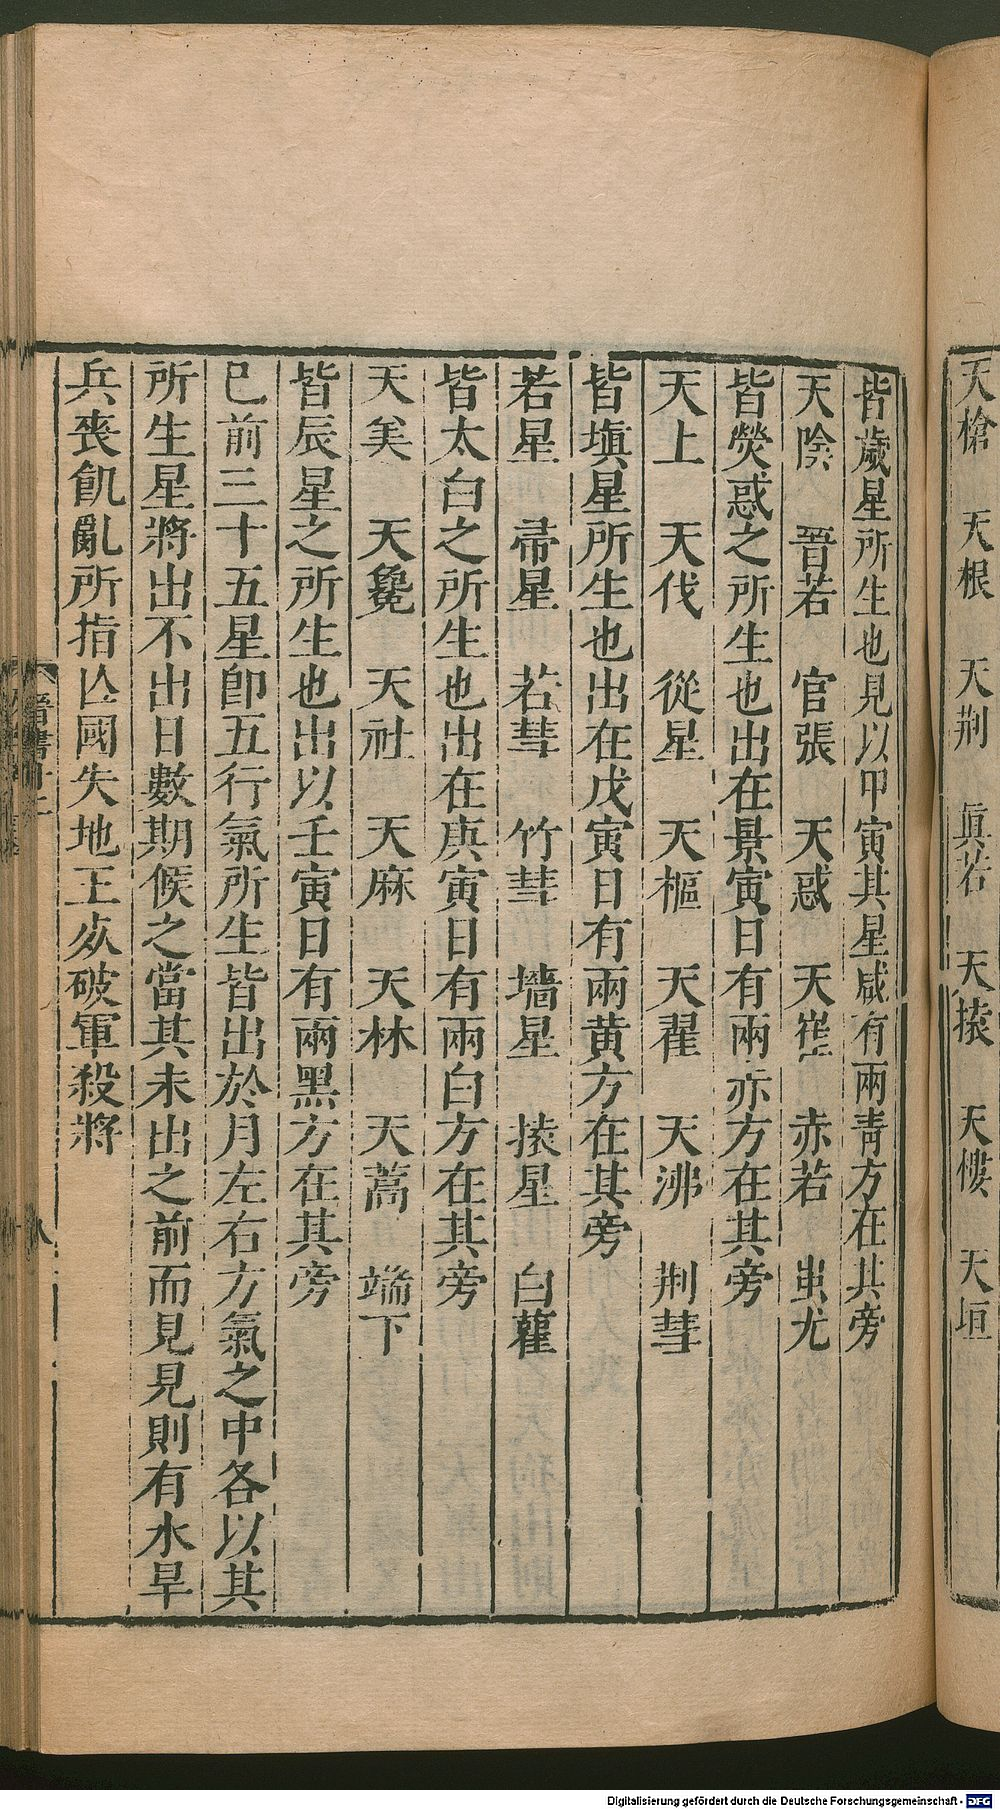 天槍　天根　天荆　真若　天榬　天樓　天垣
皆歲星所生也見以甲寅其星咸有兩靑方在其旁
天陰　晉若　官張　天惑　天崔　赤若　蚩尤
皆熒惑之所生也出在景寅日有兩赤方在其旁
天上　天伐　從星　天樞　天翟　天沸　荆彗
皆塡星所生也出在戊寅日有兩黃方在其旁
若星　帚星　若彗　竹彗　墻星　榬星　白雚
皆太白之所生也出在庚寅日有兩白方在其旁
天美　天毚　天社　天麻　天林　天蒿　端下
皆辰星之所生也出以壬寅日有兩黑方在其旁
已前三十五星卽五行氣所生皆出於月左右方氣之中各以其
所生星將出不出日數期候之當其未出之前而見見則有水旱
兵喪飢亂所指亾國失地王死破軍殺將
晉書十二
八
Digitalisierung gefördert durch die Deutsche Forschungsgemeinschaft - DFG